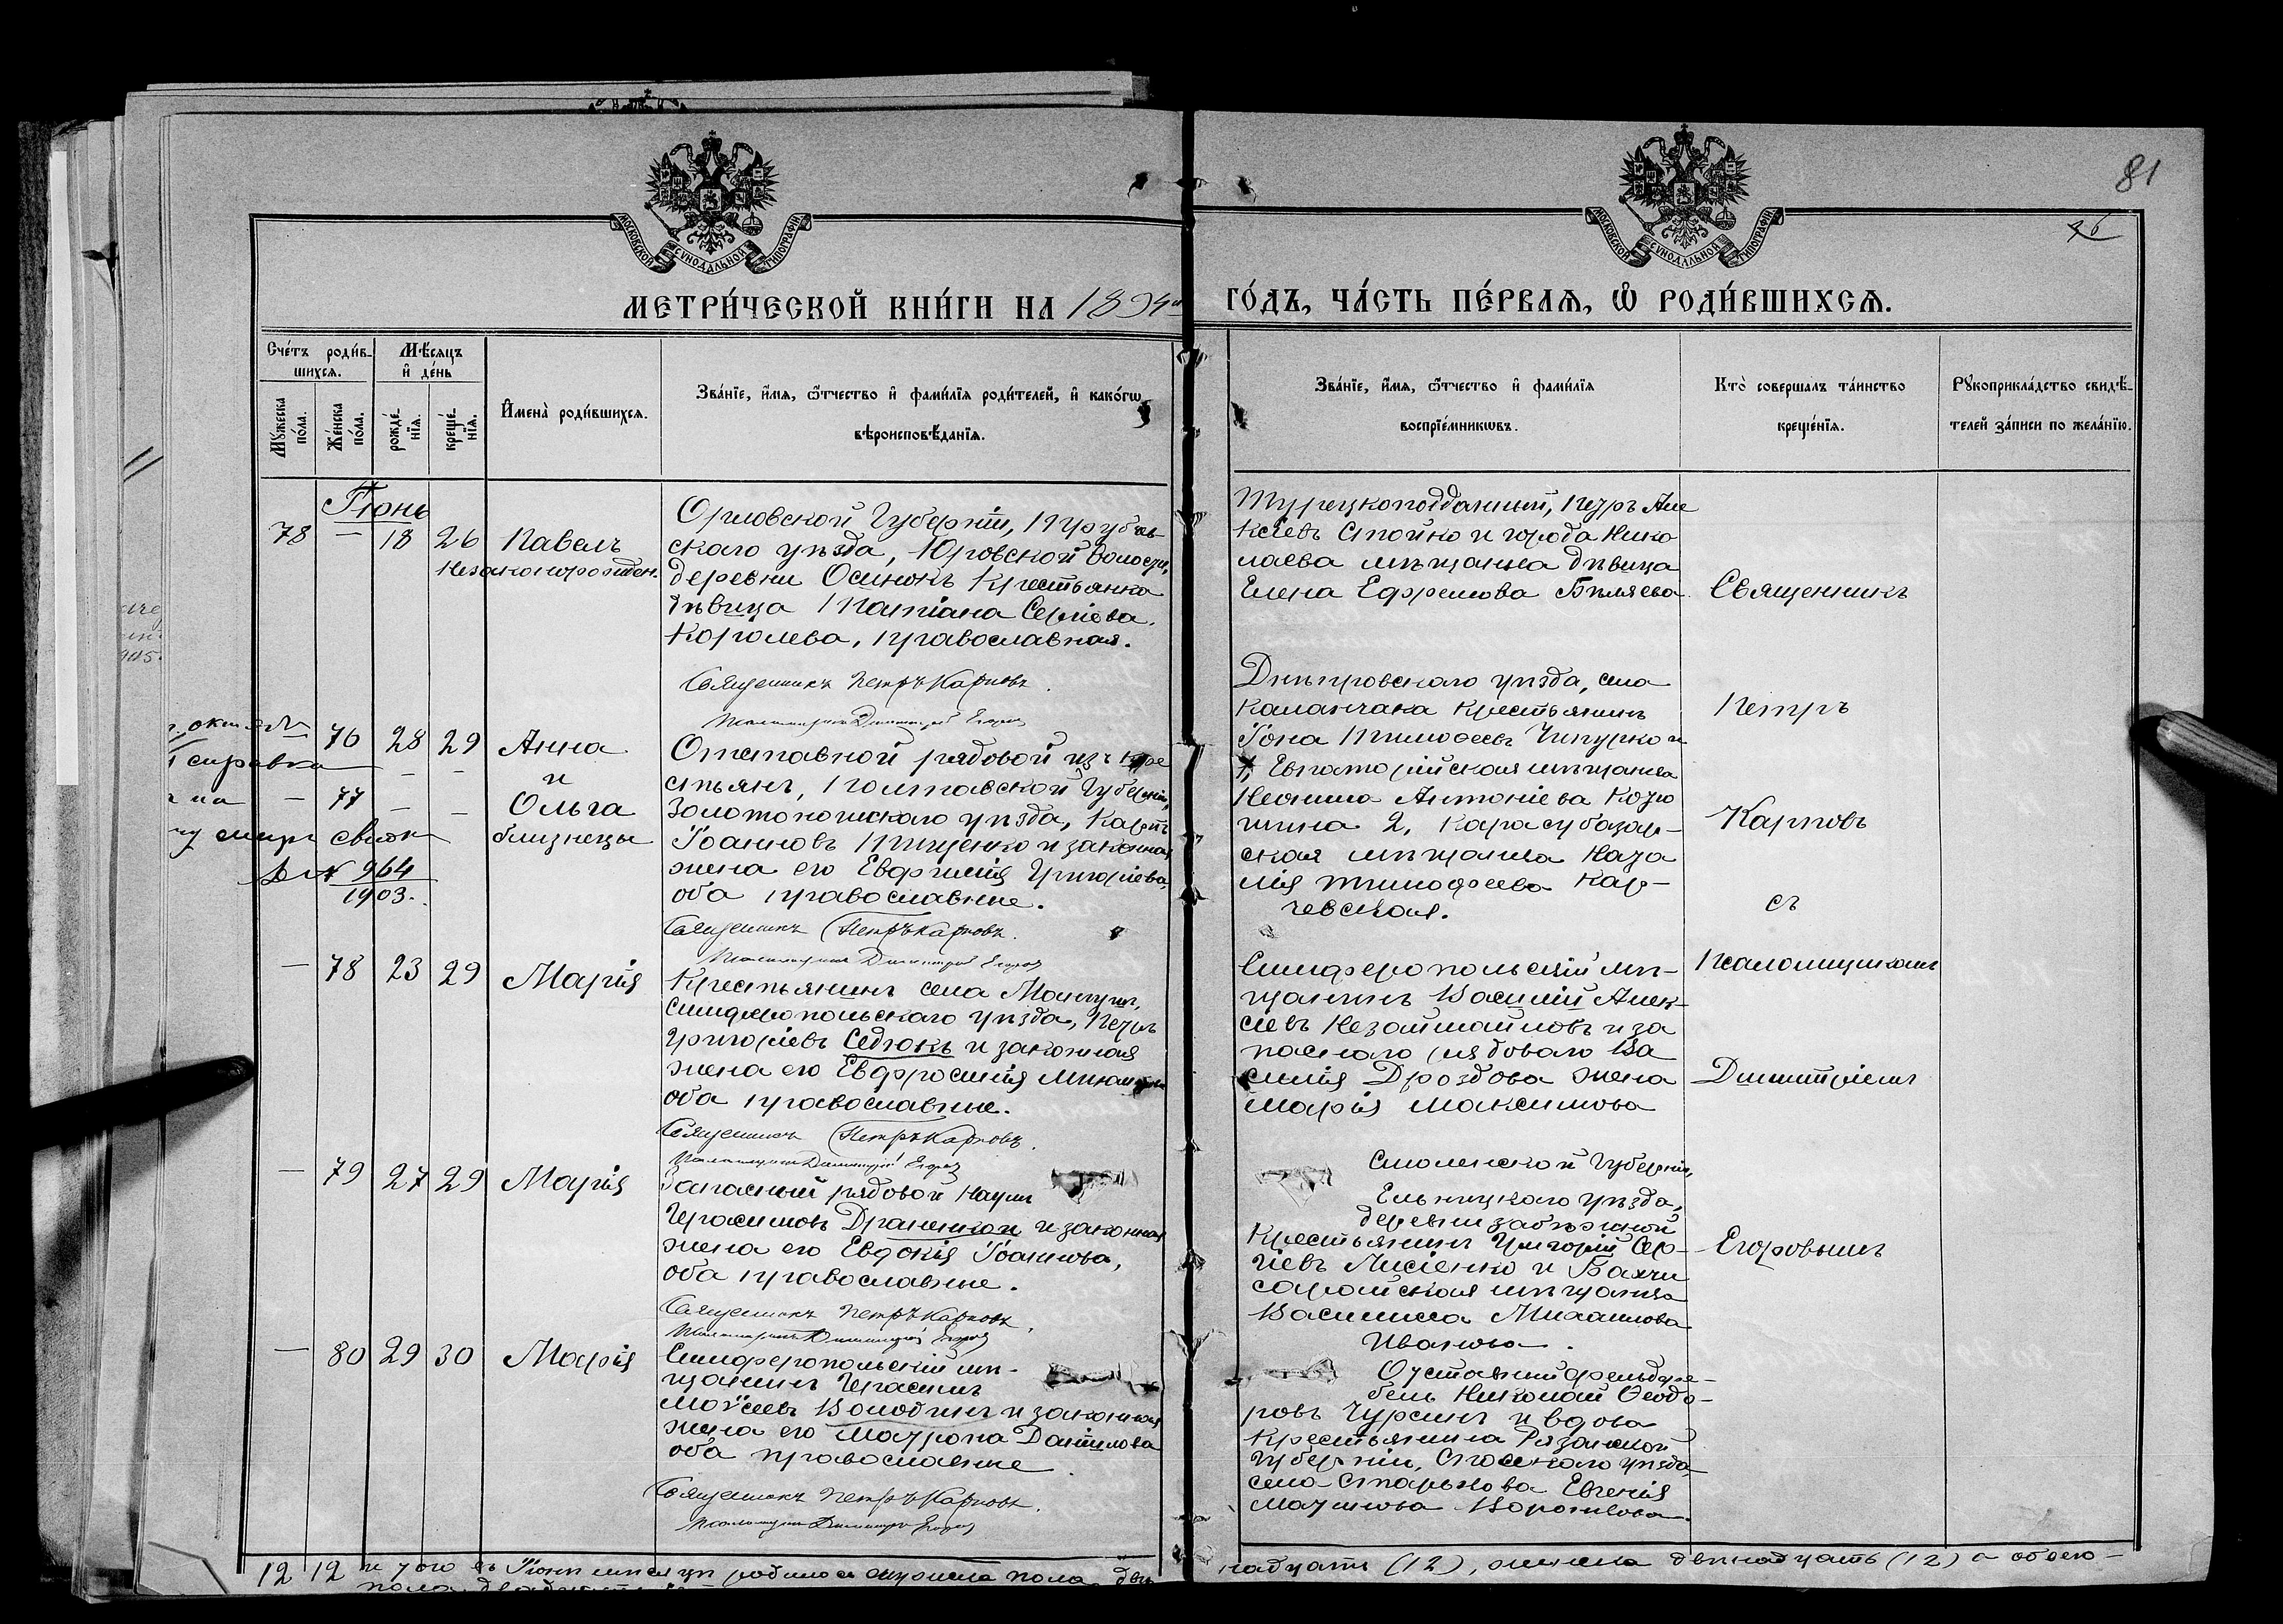 81
76
МОСКОВСКОЙ СѴНОДАЛЬНОЙ ТИПОГРАФІИ
МОСКОВСКОЙ СѴНОДАЛЬНОЙ ТИПОГРАФІИ
МЕТРИ́ЧЕСКОЙ КНИ́ГИ НА 1894й ГО́ДЪ, ЧА́СТЬ ПЕ́РВАѦ, Ѡ РОДИ́ВШИХСѦ.
Сче́тъ роди́в-
шихсѧ.
Мѣ́сѧцъ
и де́нь
Мꙋ́жеска
по́ла.
Же́нска
по́ла.
рожде́-
нїѧ.
креще́-
нїѧ.
Имена̀ роди́вшихсѧ.
Зва́нїе, и́мѧ, ѻ́тчество и фами́лїѧ роди́телей, и како́гѡ
вѣроисповѣ́данїѧ.
Зва́нїе, и́мѧ, ѻ́тчество и фами́лїѧ
воспрїе́мникѡвъ.
Кто̀ соверша́лъ та́инство
креще́нїѧ.
Рꙋкоприкла́дство свидѣ́-
телей за́писи по жела́нїю.
Іюнь
78 — 18 26 Павелъ
незаконорожден.
Орловской Губерніи, Трубчев-
скаго уѣзда, Юровской волости,
деревни Осинокъ крестьянка
дѣвица Татіана Сергіева
Королева, православная.
Священникъ Петръ Карповъ.
Псаломщикъ Димитрій Егоровъ
Турецкоподданный, Петръ Але
ксѣевъ Стойко и города Нико
лаева мѣщанка дѣвица
Елена Ефремова Бѣляева
76 28 29 Анна
и
— 77 — — Ольга
близнецы
справка
на
№ 964
1903.
Отставной рядовой изъ кре
стьянъ, Полтавской Губерніи,
Золотоношскаго уѣзда, Карпъ
Іоанновъ Тищенко и законная
жена его Евфимія Григоріева,
оба православные.
Священникъ Петръ Карповъ.
Псаломщикъ Димитрій Егоровъ
Днѣпровскаго уѣзда, села
Каланчака крестьянинъ
Іона Тимоѳеевъ Чипурко и
1, Евпаторійская мѣщанка
Неонила Антоніева Козю
шина 2, Карасубазар-
ская мѣщанка Ната
лія Тимофеева Кар-
чевская.
— 78 23 29 Марія
Крестьянинъ села Мангушъ,
Симферопольскаго уѣзда, Петръ
Григоріевъ Седюкъ и законная
жена его Евфросинія
оба православные.
Священникъ Петръ Карповъ.
Псаломщикъ Димитрій Егоровъ
Симферопольскій мѣ-
щанинъ Василій Алек-
сѣевъ Незаймайловъ и за
паснаго рядоваго Ва
силія Дроздова жена
Марія Максимова
— 79 27 29 Марія
Запасный рядовой Наумъ
Герасимовъ и законная
жена его Евдокія Іоаннова,
оба православные.
Священникъ Петръ Карповъ.
Псаломщикъ Димитрій Егоровъ
Смоленской Губерніи,
Ельнинскаго уѣзда,
деревни
Крестьянинъ Григорій Сер-
гіевъ Лисіенко и Бахчи
сарайская мѣщанка
Василиса Михаилова
Иванова.
— 80 29 30 Марія
Симферопольскій мѣ-
щанинъ Герасимъ
Моѵсеевъ Володинъ и законная
жена его Матрона Даніилова
оба православные
Священникъ Петръ Карповъ.
Псаломщикъ Димитрій Егоровъ
Отставный фельдфе-
бель Николай Ѳеодо-
ровъ Чурсинъ и вдова
крестьянина Рязанской
Губерніи, Спасскаго уѣзда
села Старькова Евгенія
Наумова
Священникъ
Петръ
Карповъ
съ
Псаломщикомъ
Димитріемъ
Егоровымъ
12 12 и того въ Іюнѣ мѣсяцѣ родилось мужеска пола двѣ
надцать (12), женска двѣнадцать (12) а обоего
пола